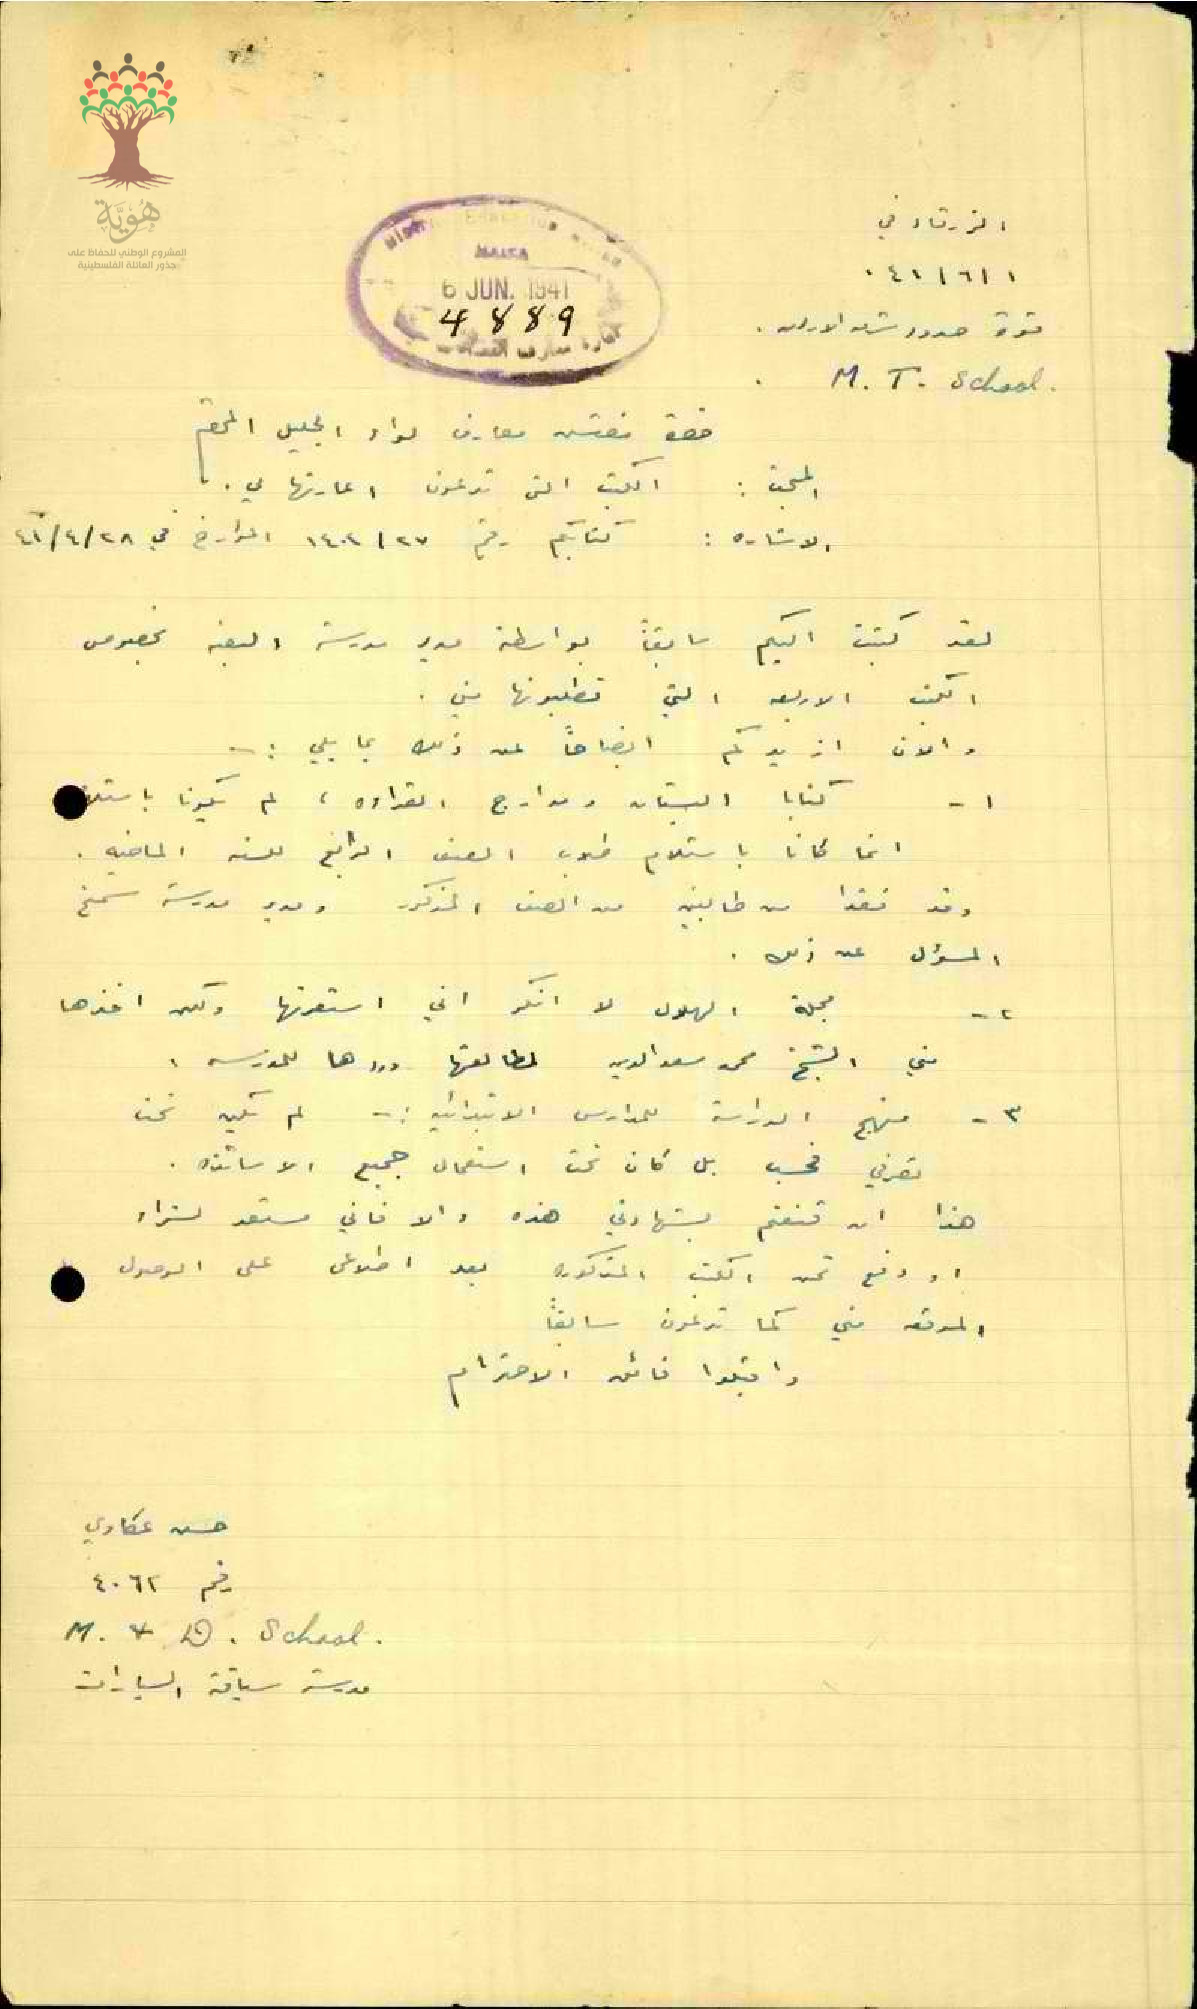 هُوِيَّة
المشروع الوطني للحفاظ على
جذور العائلة الفلسطينية
District Education
HAIFA
6 JUN. 1941
4889
الزرقاء في
٤١/٦/١
قوة حدود شرق الاردن .
M. T. School.
حضرة مفتش معارف لواء الجليل المحترم
المبحث : الكتب التي تدعون اعارتها لي .
الاشاره : كتابكم رقم ١٤٠٢/٢٧ المؤرخ في ٤١/٤/٢٨
لقد كتبت اليكم سابقاً بواسطة مدير مدرسة البعنه بخصوص
الكتب الاربعه التي تطلبونها مني .
والآن ازيدكم ايضاحاً عن ذلك بما يلي :-
١- كتابا البستان ومدارج القراءه ، لم يكونا باستلا
انما كانا باستلام طلاب الصف الرابع للسنه الماضيه .
وقد فقدا من طالبين من الصف المذكور ومدير مدرسة سمخ
المسؤل عن ذلك .
٢- مجلة الهلال لا انكر اني استعرتها ولكن اخذها
مني الشيخ محمد سعد الدين لمطالعتها وردها للمدرسه .
٣- منهج الدراسة للمدارس الابتدائيه :- لم تكن تحت
تصرفي فحسب بل كان تحت استعمال جميع الاساتذه .
هذا ان قنعتم بشهادتي هذه والا فاني مستعد لشراء
او دفع ثمن الكتب المذكوره بعد اطلاعي على الوصول
الموقعه مني كما تدعون سابقاً
واقبلوا فائق الاحترام
حسن عكاوي
رقم ٤٠٦٢
M. & D. School.
مدرسة سياقة السيارات